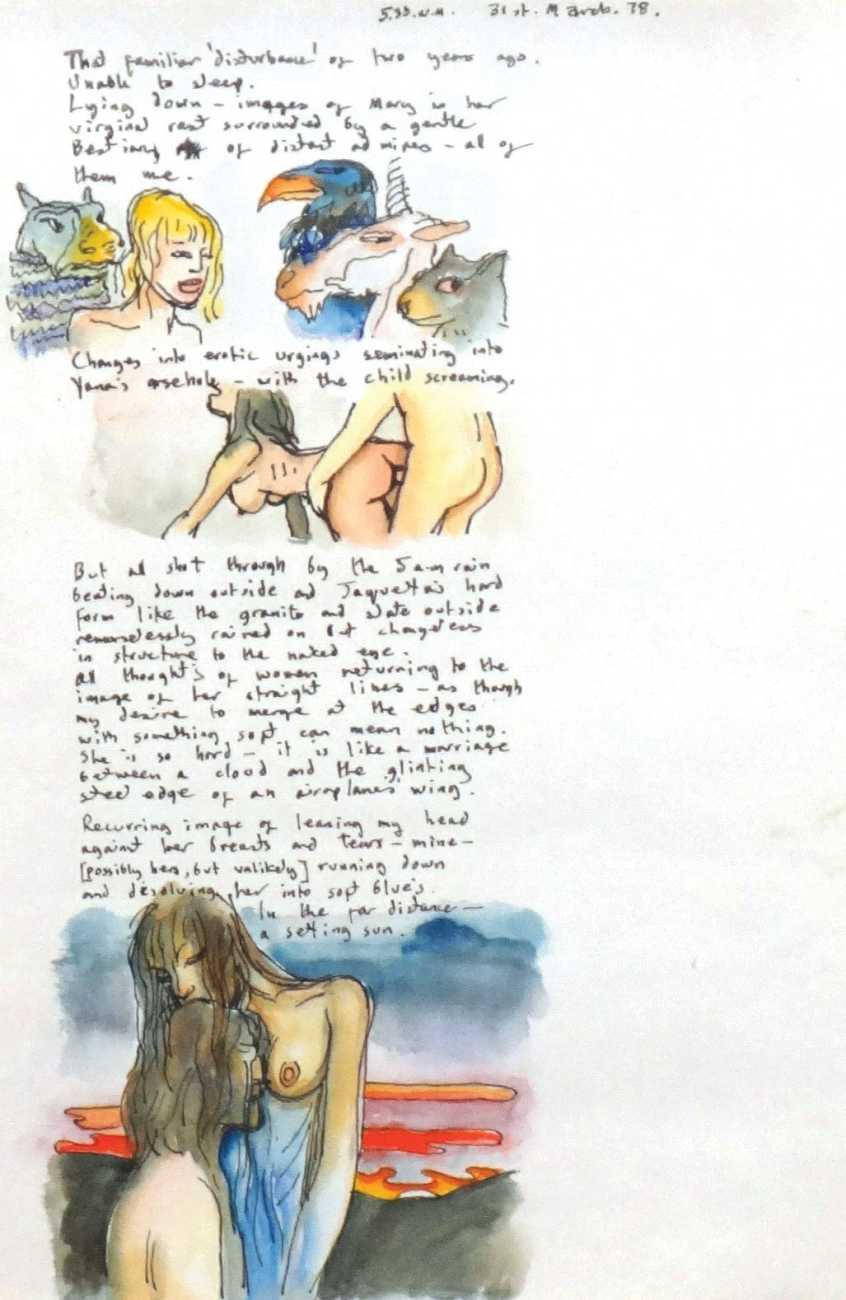 5.30.a.m. 31st. March. 78.
That familiar 'disturbance' of two years ago.
Unable to sleep.
Lying down – images of Mary in her
virginal rest surrounded by a gentle
Bestiary of distant admirers – al of
them me.
Changes into erotic urgings seminating into
Yana's arsehole – with the child screaming.
But al shot through by the 5am rain
beating down outside and Jaquetta's hard
form like the granite and slate outside
remorselessly rained on but changeless
in structure to the naked eye.
All thought's of women returning to the
image of her straight lines – as though
my desire to merge at the edges
with something soft can mean nothing.
She is so hard – it is like a marriage
between a cloud and the glinting
steel edge of an airoplanes' wing.
Recurring image of leaning my head
against her breasts and tears – mine –
[possibly hers, but unlikely] running down
and desolving her into soft blue's.
In the far distance –
a setting sun.